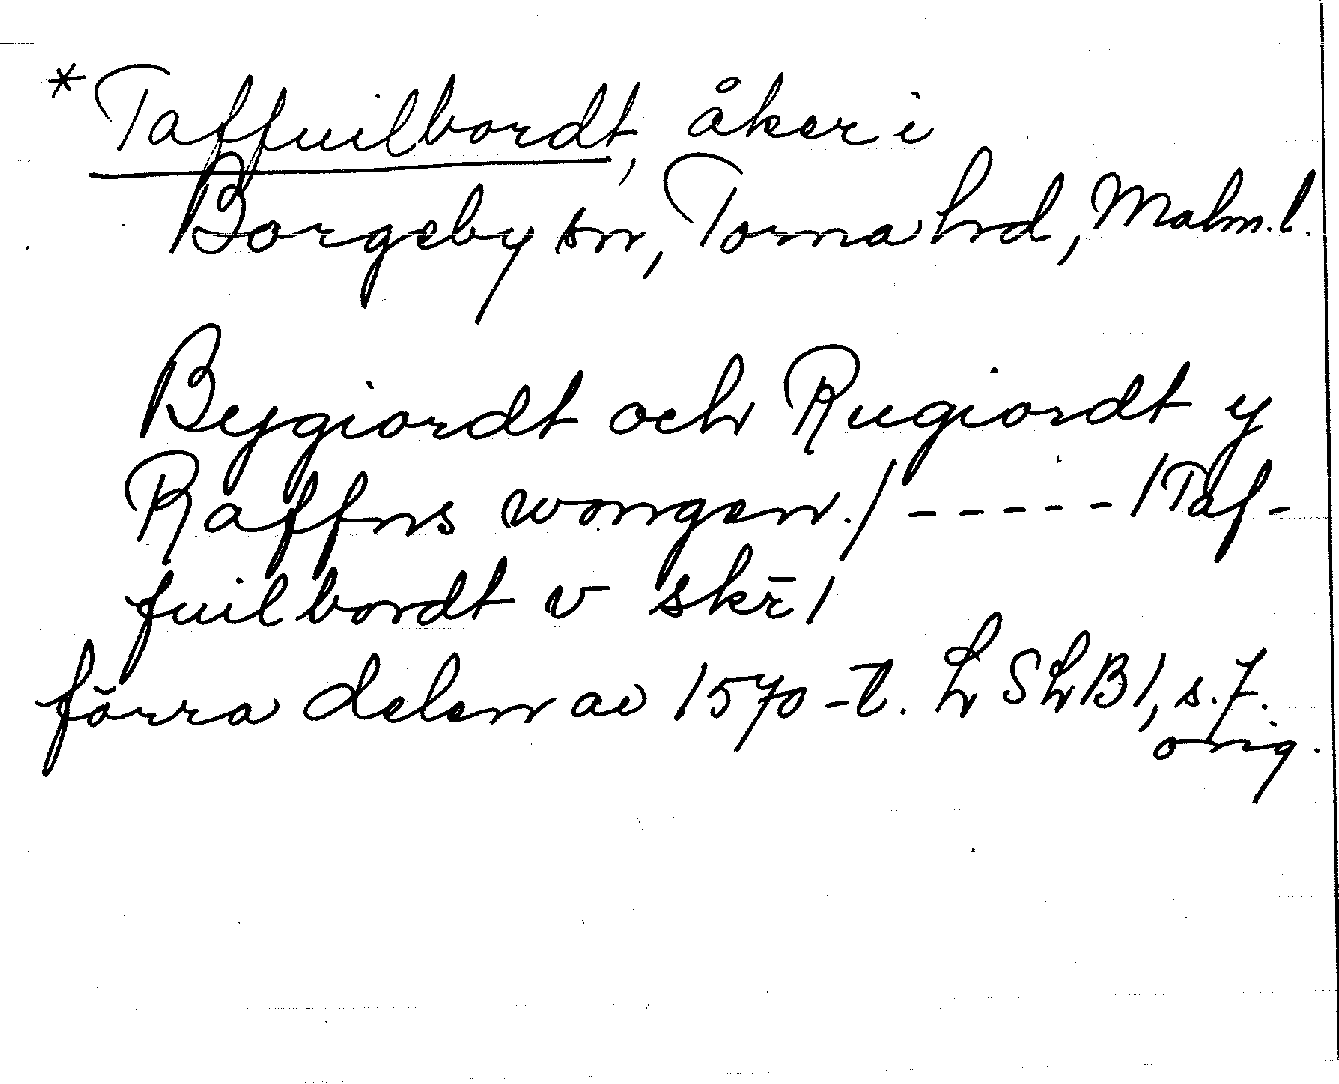 * Taffuilbordt, åker i
Borgeby sn, Torna hd, Malm. l.
Bygiordt och Rugiordt y
Raffns wongen. / - - - - - / Taf-
fuilbordt v skr̄ /
förra delen av 1570-t. LSLB 1, s. 7.
orig.